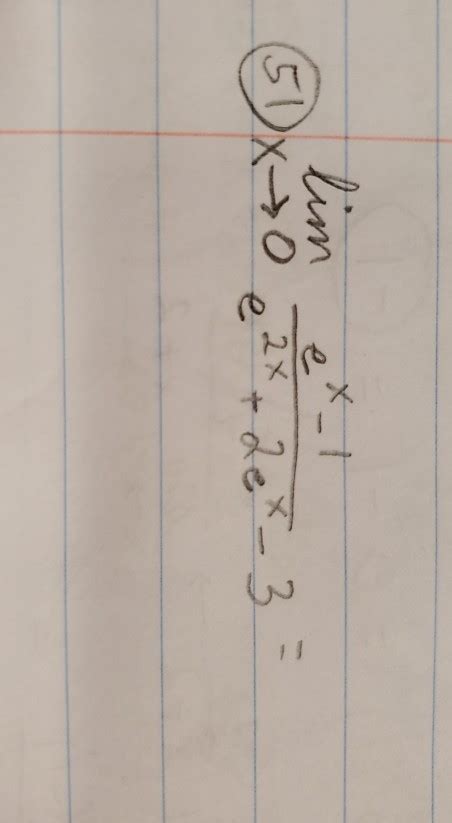 51 lim x→0 (e^x - 1)/(e^{2x} + 2e^x - 3) =